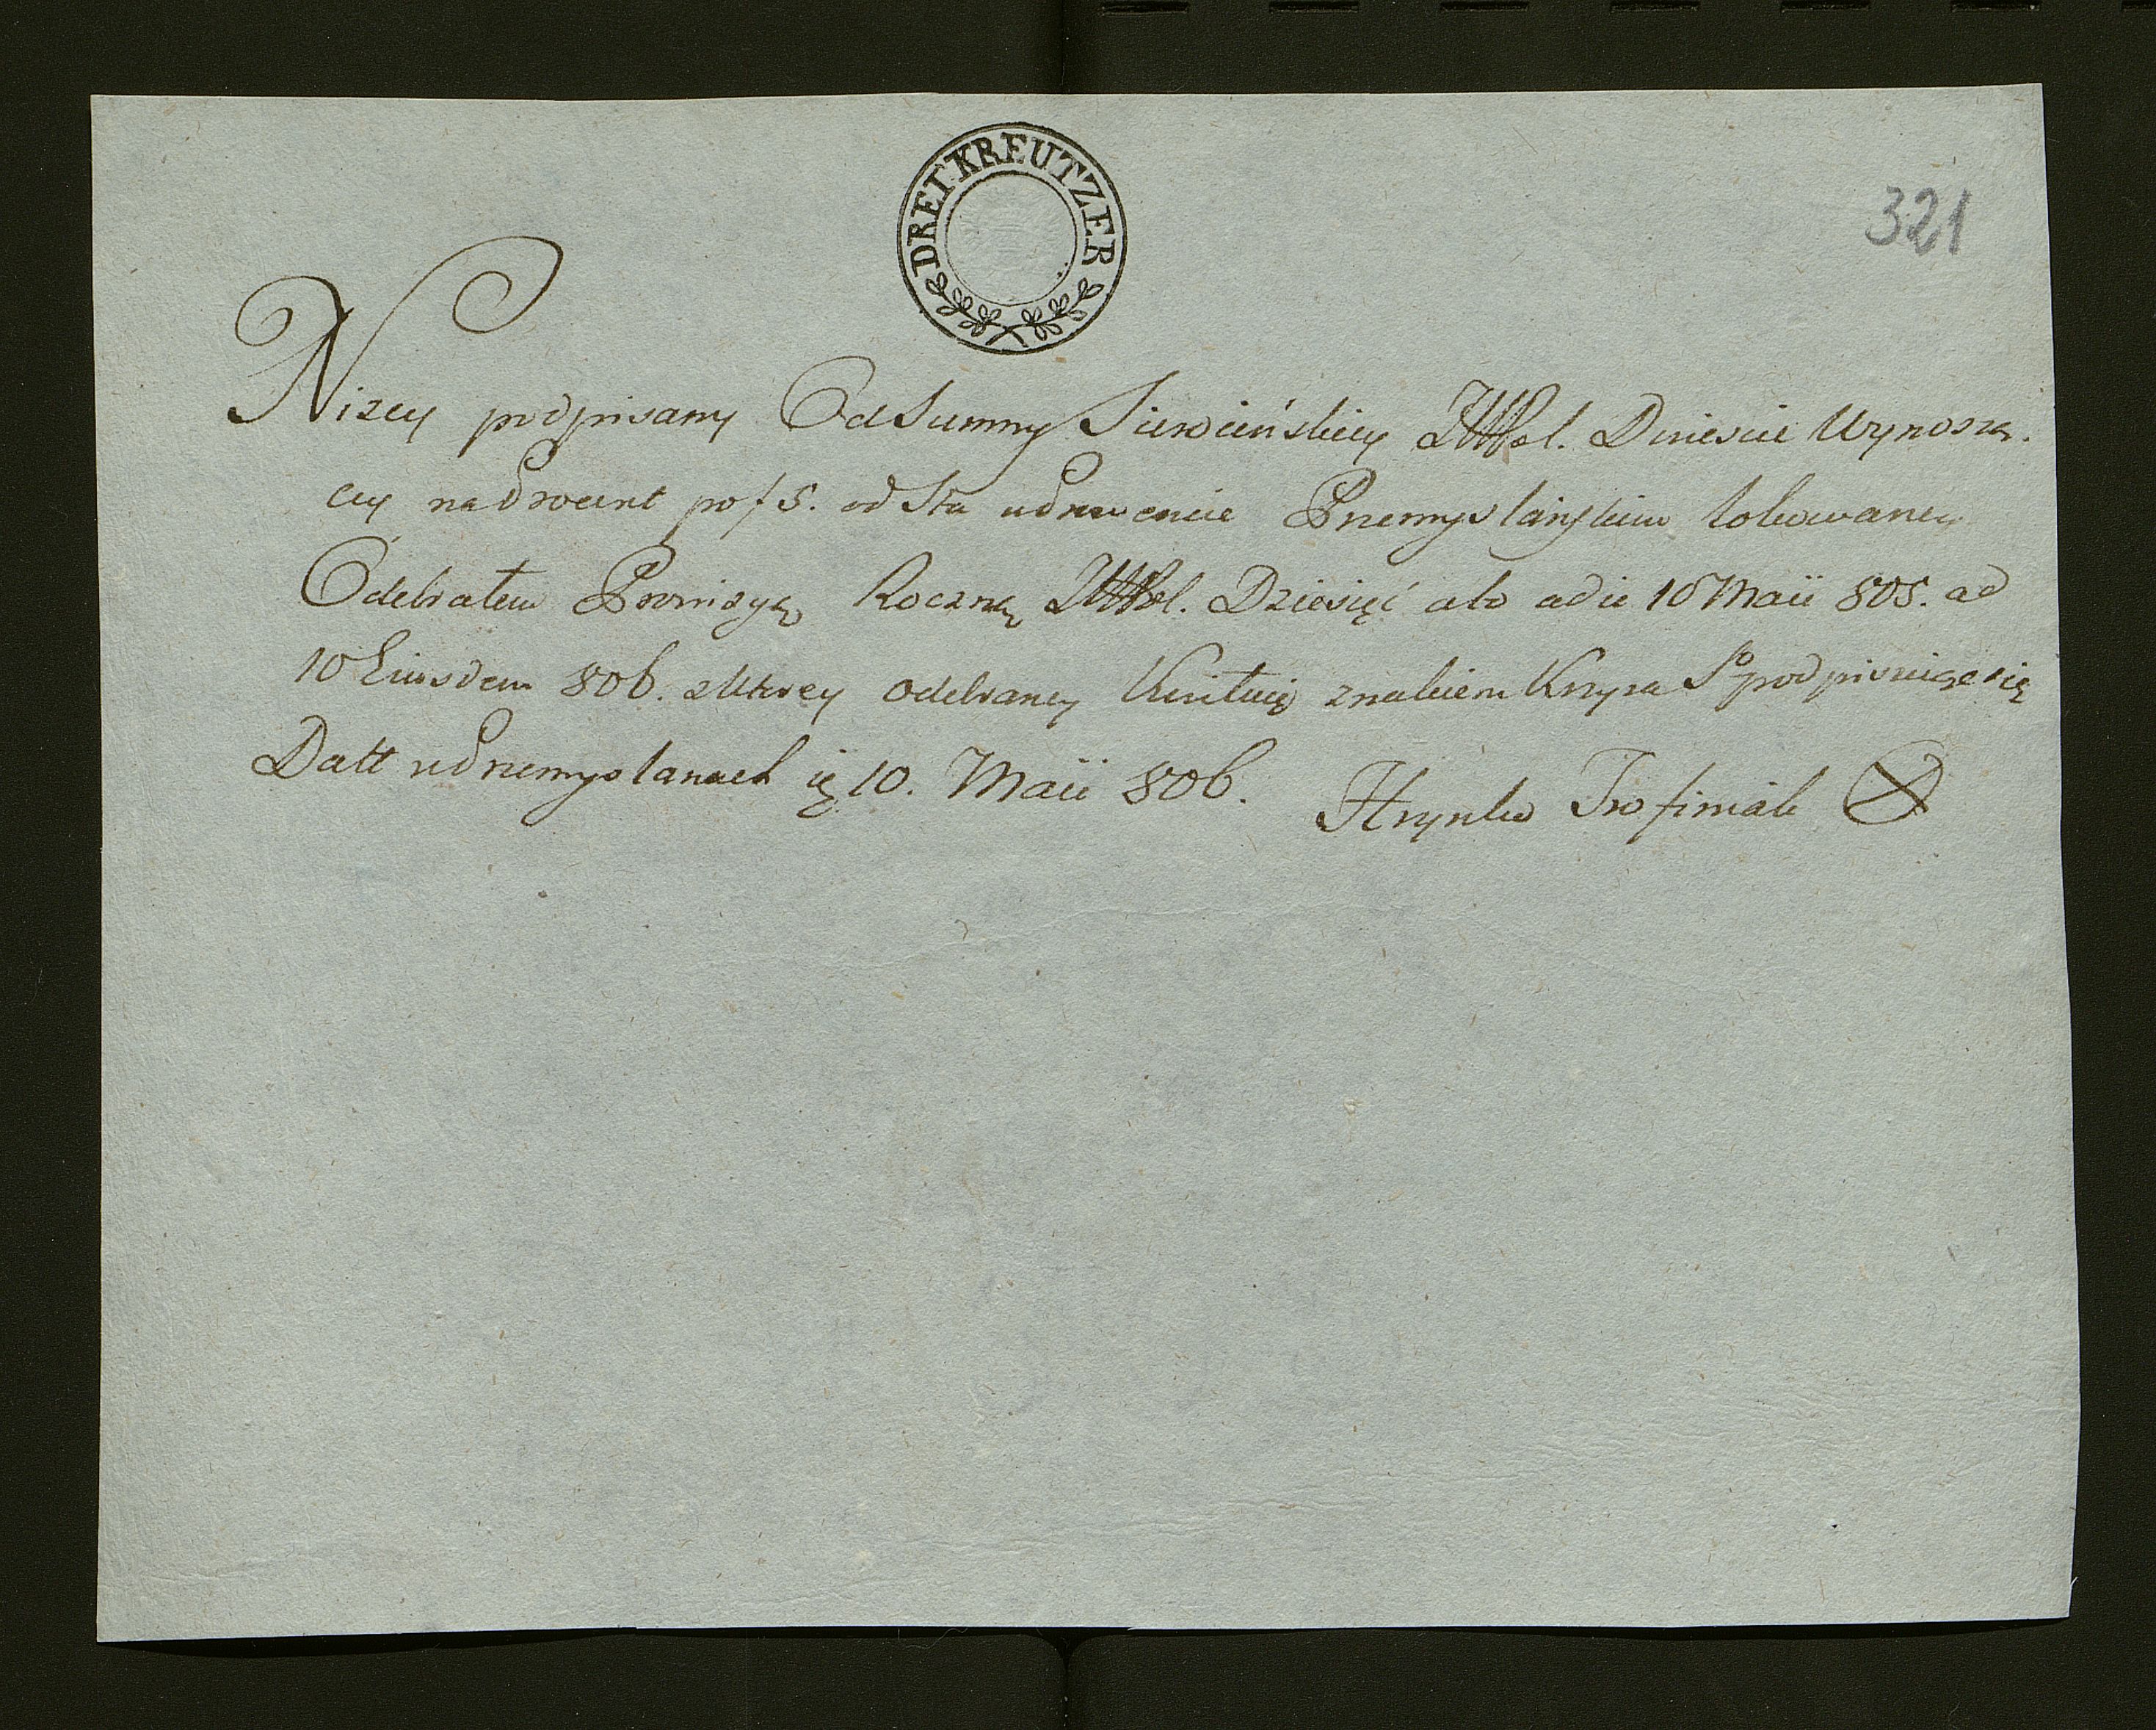 DREI KREUTZER
321
Nizey podpisany Od Summy Sierocińskiey ZłłPol. Dwiescie Wynoszą.
cey na Procent po f 5. od Sta w Prowencie Przemyslańskim lokowaney
Odebrałem Prowizyą Roczną ZłłPol. Dziesięć a to a die 10 Maii 805. ad
10 Eiusdem 806. z Ktorey odebraney Kwituię znakiem Krzyza S° podpisuiąc się
Datt w Przemyslanach ię 10. Maii 806.
Hrynko Trofimiak